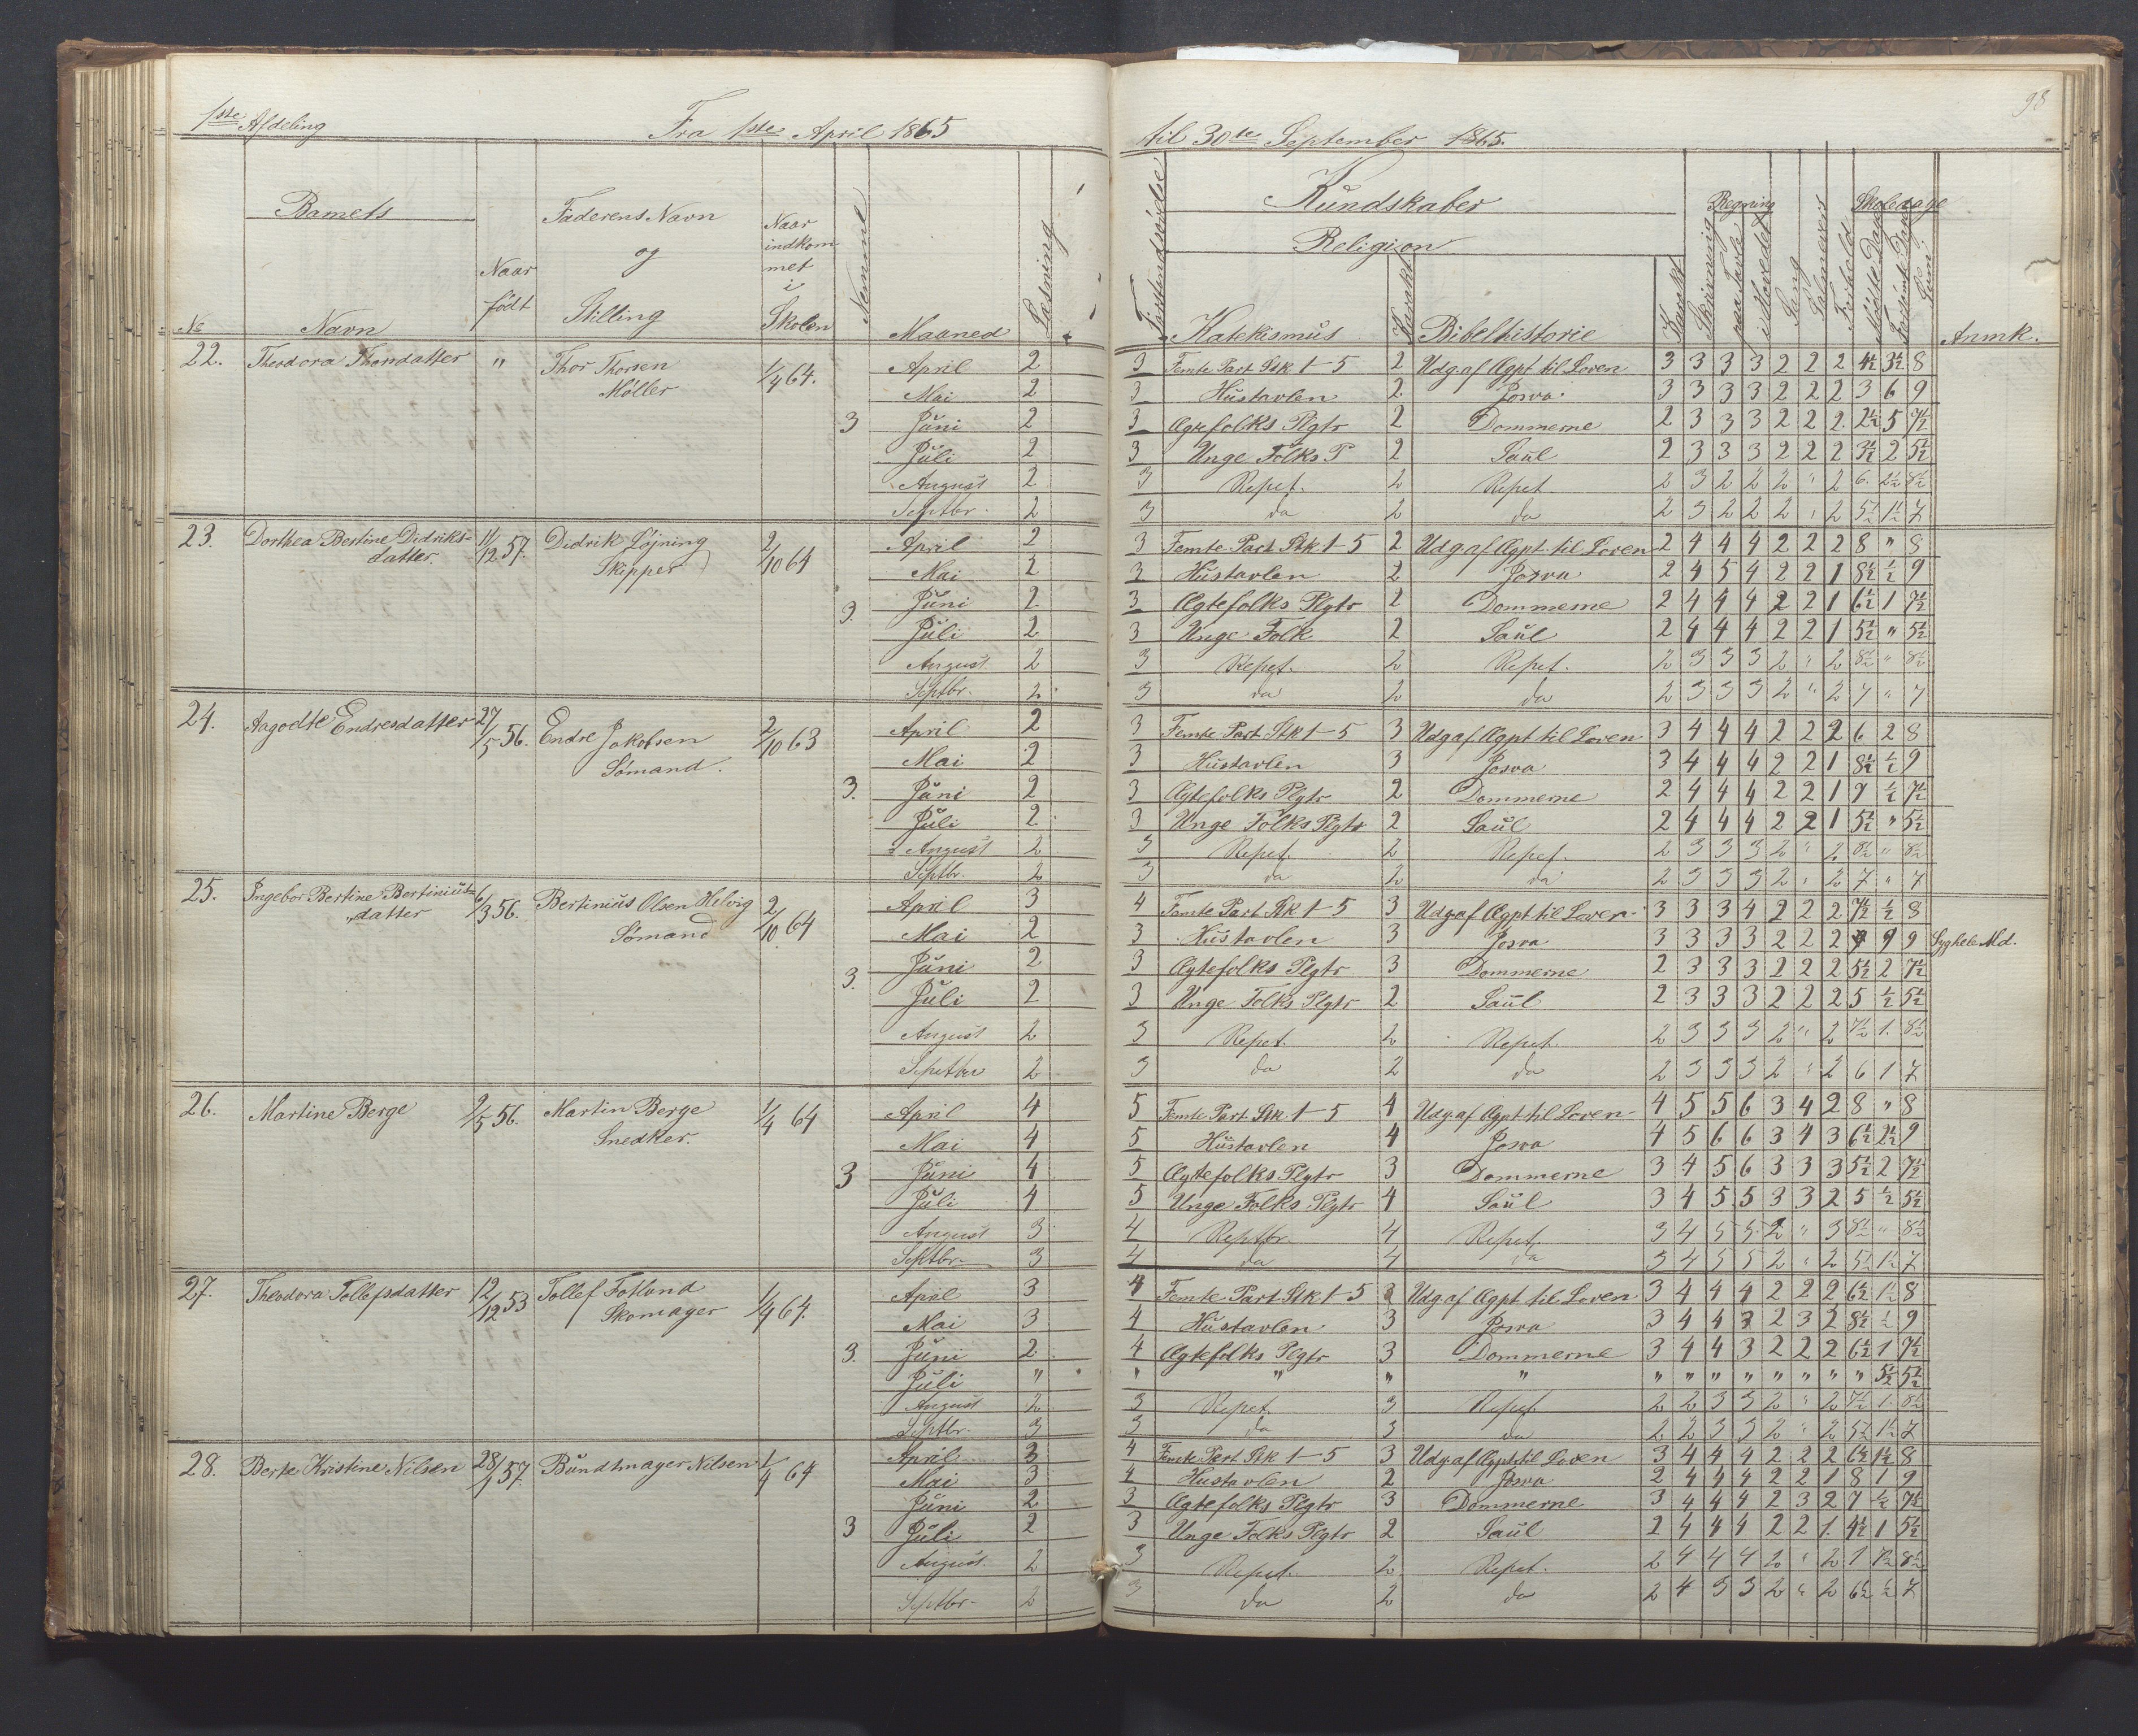 98
1ste Afdeling Fra 1ste April 1865 til 30te September 1865.
Kundskaber
Religion
Barnets Naar født Faderens Navn og Stilling Naar indkommet i Skolen Nemme Maaned Læsning Forstandsøvelse
No Navn Katekismus Karakt. Bibelhistorie Karakt. Skrivning Regning paa Tavle i Hovedet Sang Forhold Skoledage Mødte Dage Anmk.
22. Theodora Thorsdatter " Thor Thorsen Møller 1/4 64. 3
April 2 3 Femte Part Stk 1-5 2 Udg. af Ægpt til Loven 3 3 3 3 2 2 2 4½ 3½ 8
Mai 2 3 Hustavlen 2 Josva 3 3 3 3 2 2 2 3 6 9
Juni 2 3 Ægtefolks Plgtr 2 Dommerne 2 3 3 3 2 2 2 2½ 5 7½
Juli 2 3 Unge Folks P 2 Saul 2 3 3 3 2 2 2 3½ 2 5½
August 2 3 Repet. 2 Repet. 2 3 2 2 2 " 2 6 2½ 8½
Septbr. 2 3 do 2 do 2 3 2 2 2 " 2 5½ 1½ 7
23. Dorthea Bertine Didriksdatter. 11/12 57. Didrik Løjning Skipper 2/10 64 3.
April 2 3 Femte Part Stk 1-5 2 Udg. af Ægpt. til Loven 2 4 4 4 2 2 2 8 " 8
Mai 2 3 Hustavlen 2 Josva 2 4 5 4 2 2 1 8½ ½ 9
Juni 2 3 Ægtefolks Plgtr 2 Dommerne 2 4 4 4 2 2 1 6½ 1 7½
Juli 2 3 Unge Folk 2 Saul 2 4 4 4 2 2 1 5½ " 5½
August 2 3 Repet. 2 Repet. 2 3 3 3 2 " 2 8½ " 8½
Septbr. 2 3 do 2 do 2 3 3 3 2 " 2 7 " 7
24. Aagodte Endresdatter 27/5 56. Endre Jakobsen Sømand. 2/10 63 3.
April 2 3 Femte Part Stk 1-5 3 Udg af Ægpt til Loven 3 4 4 4 2 2 2 6 2 8
Mai 2 3 Hustavlen 3 Josva 3 4 4 4 2 2 1 8½ ½ 9
Juni 2 3 Ægtefolks Plgtr 2 Dommerne 2 4 4 4 2 2 1 7 ½ 7½
Juli 2 3 Unge Folks Plgtr 2 Saul 2 4 4 4 2 2 1 5½ " 5½
August 2 3 Repet. 2 Repet. 2 3 3 3 2 " 2 8½ " 8½
Septbr. 2 3 do 2 do 2 3 3 3 2 " 2 7 " 7
25. Ingebor Bertine Bertiniusdatter 6/3 56. Bertinius Olsen Helvig Sømand 2/10 64 3.
April 3 4 Femte Part Stk 1-5 3 Udg af Ægpt til Loven 3 3 3 4 2 2 2 7½ ½ 8
Mai 2 3 Hustavlen 3 Josva 3 3 3 3 2 2 2 " 9 9 Syg hele Md.
Juni 2 3 Ægtefolks Plgtr 3 Dommerne 2 3 3 3 2 2 2 5½ 2 7½
Juli 2 3 Unge Folks Plgtr 2 Saul 2 3 3 3 2 2 2 5 ½ 5½
August 2 3 Repet. 2 Repet. 2 3 3 3 2 " 2 7½ 1 8½
Septbr 2 3 do 2 do 2 3 3 3 2 " 2 6 1 7
26. Martine Berge 9/5 56. Martin Berge Snedker. 1/4 64 3
April 4 5 Femte Part Stk. 1-5 4 Udg. af Ægpt til Loven 4 5 5 6 3 4 2 8 " 8
Mai 4 5 Hustavlen 4 Josva 4 5 6 6 3 4 3 6½ 2½ 9
Juni 4 5 Ægtefolks Plgtr 3 Dommerne 3 4 5 6 3 3 3 5½ 2 7½
Juli 4 5 Unge Folks Plgtr 4 Saul 3 4 5 5 3 3 2 5 ½ 5½
August 3 4 Reptbr. 4 Repet. 3 4 5 5 2 " 3 8½ " 8½
Septbr. 3 4 do 4 do 3 4 5 5 2 " 2 5½ 1½ 7
27. Theodora Tollefsdatter 12/12 53 Tollef Fotland Skomager 1/4 64. 3.
April 3 4 Femte Part Stk 1-5 3 Udg af Ægpt til Loven 3 4 4 4 2 2 2 6½ 1½ 8
Mai 3 4 Hustavlen 3 Josva 3 4 4 3 2 3 2 8½ ½ 9
Juni 2 4 Ægtefolks Plgtr 3 Dommerne 3 4 4 3 2 2 2 6½ 1 7½
Juli " " " " " " " " " " " " " 5½ 5½
August 2 3 Repet. 3 Repet. 2 2 3 3 2 " 2 7½ 1 8½
Septbr. 3 3 do 3 do 2 2 3 3 2 " 2 5½ 1½ 7
28. Berte Kristine Nilsen 28/1 57. Bundtmager Nilsen 1/4 64 3
April 3 4 Femte Part Stk 1-5 3 Udg. af Ægpt til Loven 3 4 4 4 2 2 2 6½ 1½ 8
Mai 3 4 Hustavlen 2 Josva 2 4 4 4 2 2 1 8 1 9
Juni 2 3 Ægtefolks Plgtr 3 Dommerne 3 4 4 4 2 3 2 7 ½ 7½
Juli 2 3 Unge Folks Plgtr 2 Saul 2 4 4 4 2 2 1 4½ 1 5½
August. 2 3 Repet. 2 Repet. 2 4 4 4 2 " 2 1 7½ 8½
Septbr. 2 3 do 2 do 2 4 3 3 2 " 2 6½ ½ 7